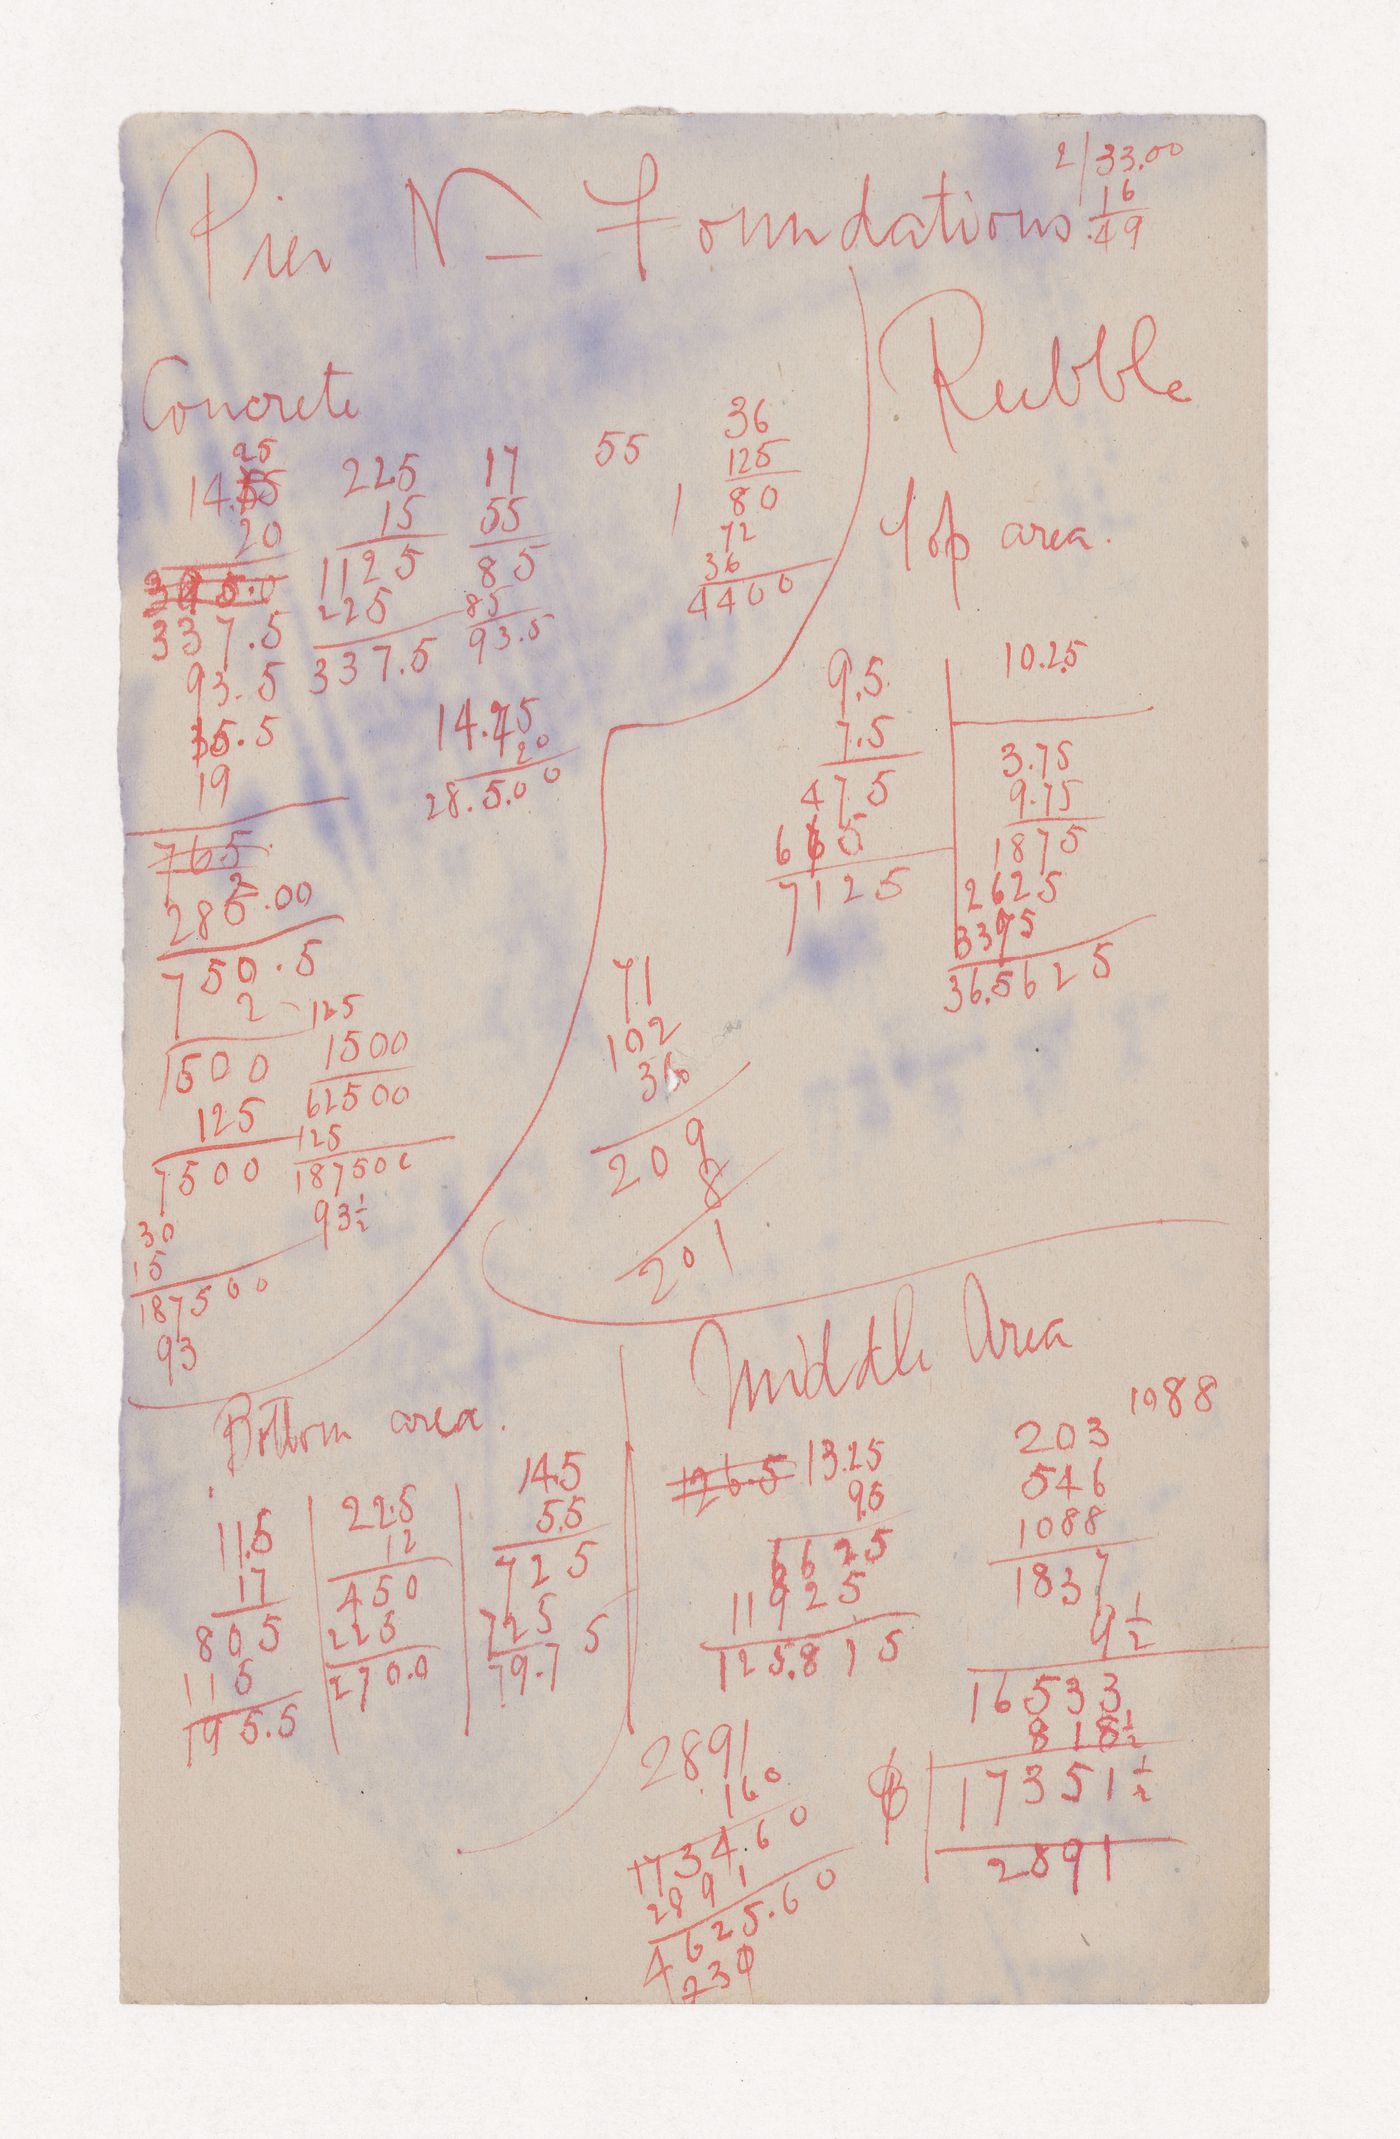 Pier N Foundations
2/33.00
16
49
Concrete
25
14.55
20
337.5
93.5
35.5
19
765
2
285.00
750.5
2
1500
125
7500
30
15
187500
93
225
15
1125
225
337.5
17
55
85
85
93.5
55
36
125
1 80
72
36
4400
14.25
20
28.5.00
125
1500
62500
125
187500
93½
Rubble
Top area.
9.5
7.5
475
665
7125
10.25
3.75
9.75
1875
2625
3375
36.5625
71
102
36
209
8
201
Bottom area.
11.5
17
805
115
195.5
22.5
12
450
225
270.0
14.5
5.5
725
725
79.75
Middle Area
126.5 13.25
9.5
6625
11925
125.875
1088
203
546
1088
1837
9½
16533
818½
17351½
2891
2891
160
1734.60
2891
4625.60